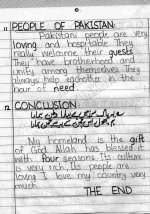 11 PEOPLE OF PAKISTAN
Pakistani people are very
loving and hospitable They
really welcome their guests
They have brotherhood and
unity among themselves They
always help eachother in the
hour of need
12 CONCLUSION
My homeland is the gift
of God. Allah has blessed it
with four seasons. Its culture
is very rich, its people are
loving. I love my country very
much.
THE END